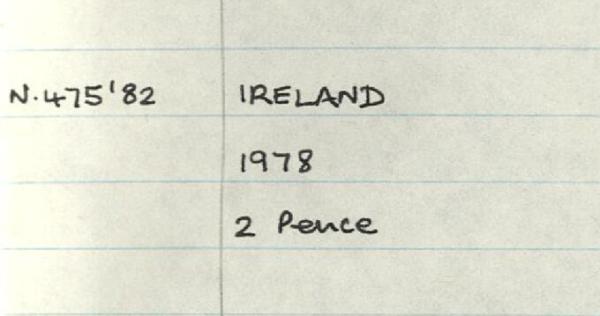 N.475'82 IRELAND
1978
2 Pence